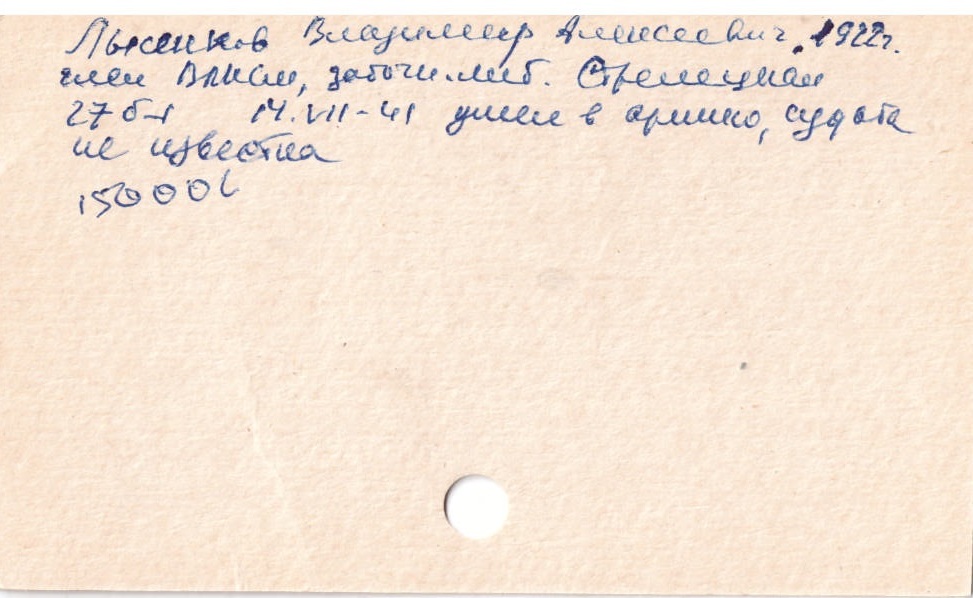 Лысенков Владимир Алексеевич 1922г.
член ВЛКСМ, Стрелецкая
27 14.VII-41 ушел в армию, судьба
не известна